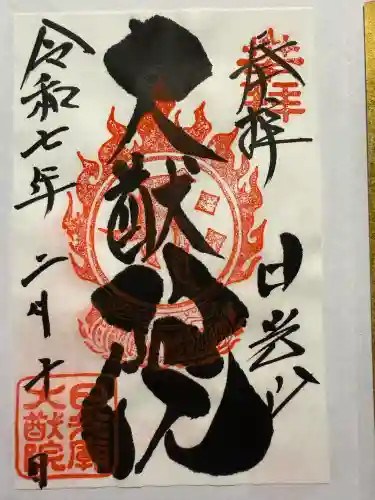 奉拝
日光山
大猷院
令和七年二月十日
日光廟
大猷院